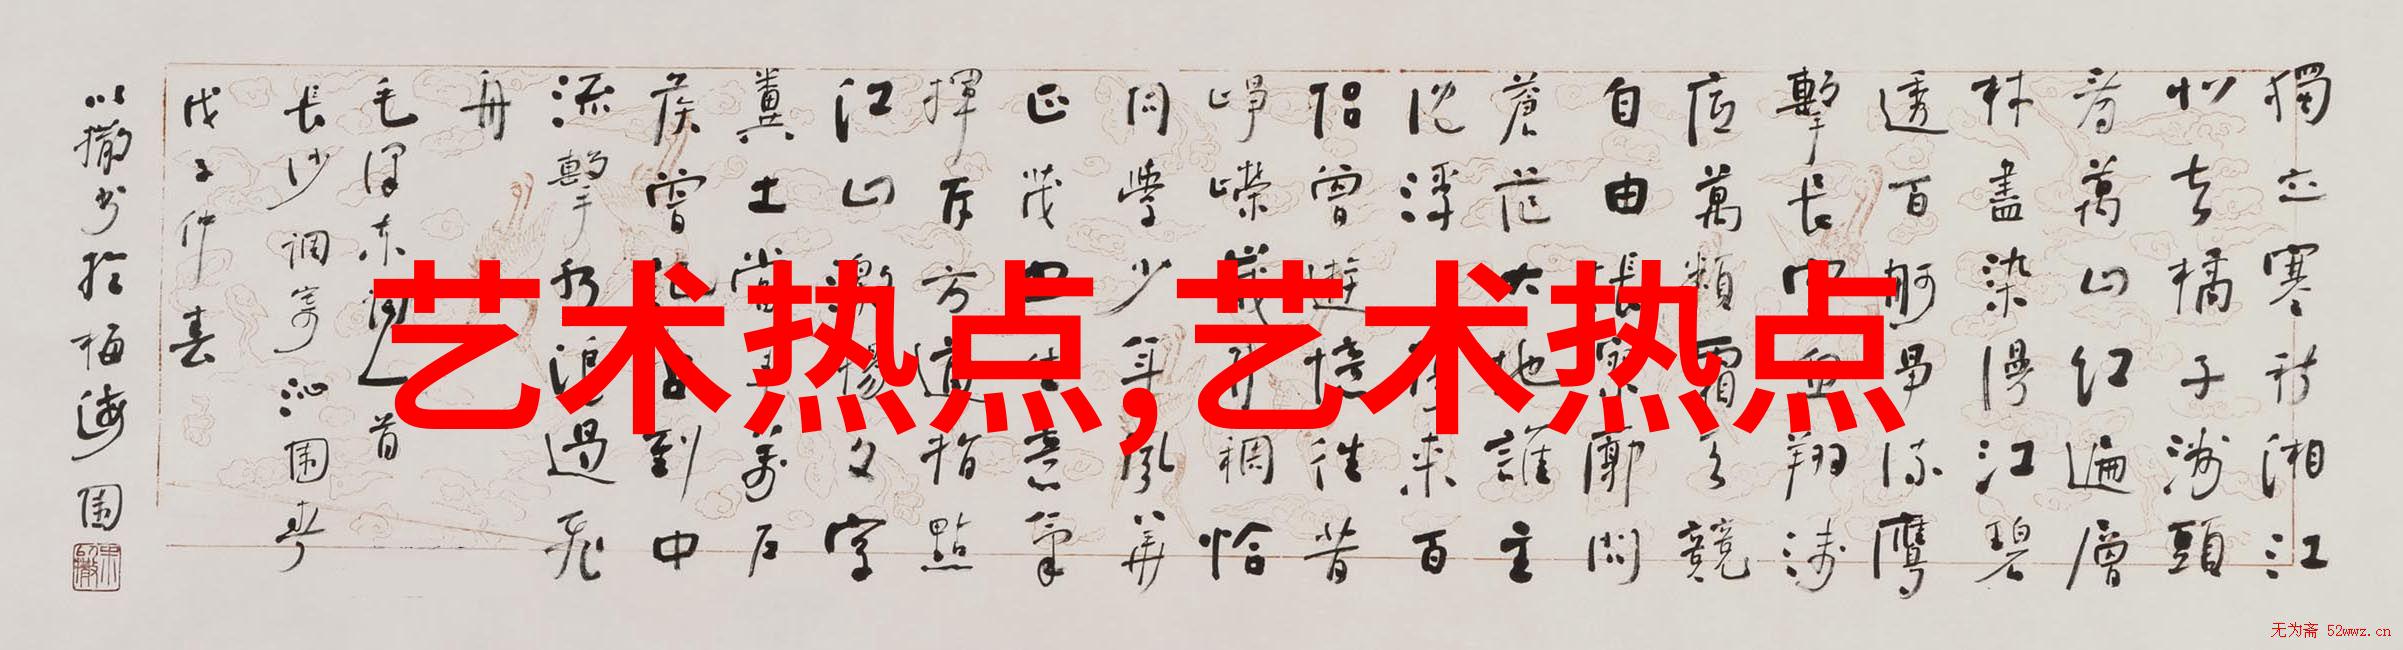 獨立寒秋湘江
北去橘子洲頭
看萬山紅遍層
林盡染漫江碧
透百舸爭流鷹
擊長空魚翔淺
底萬類霜天競
自由悵寥廓問
蒼茫大地誰主
沈浮攜來百
侶曾遊憶往昔
崢嶸歲月稠恰
同學少年風華
正茂書生意氣
揮斥方遒指點
江山激揚文字
糞土當年萬戶
侯曾記否到中
流擊水浪遏飛
舟
毛澤東詞一首
長沙 調寄沁園春
戊子仲春
撤书於梅海園
艺术热点,艺术热点
无为斋 52wwz.cn